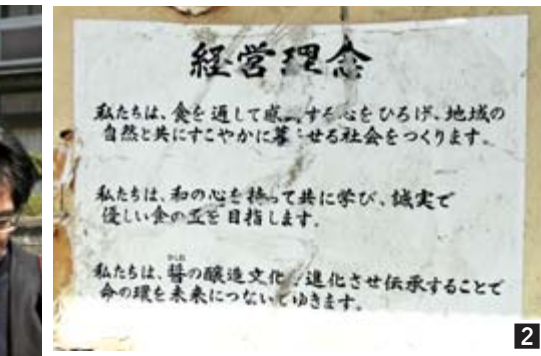 経営理念
私たちは、食を通して感する心をひろげ、地域の
自然と共にすこやかに暮せる社会をつくります。
私たちは、和の心を持って共に学び、誠実で
優しい食の匠を目指します。
私たちは、醤の醸造文化進化させ伝承することで
命の環を未来につないゆきます。
2